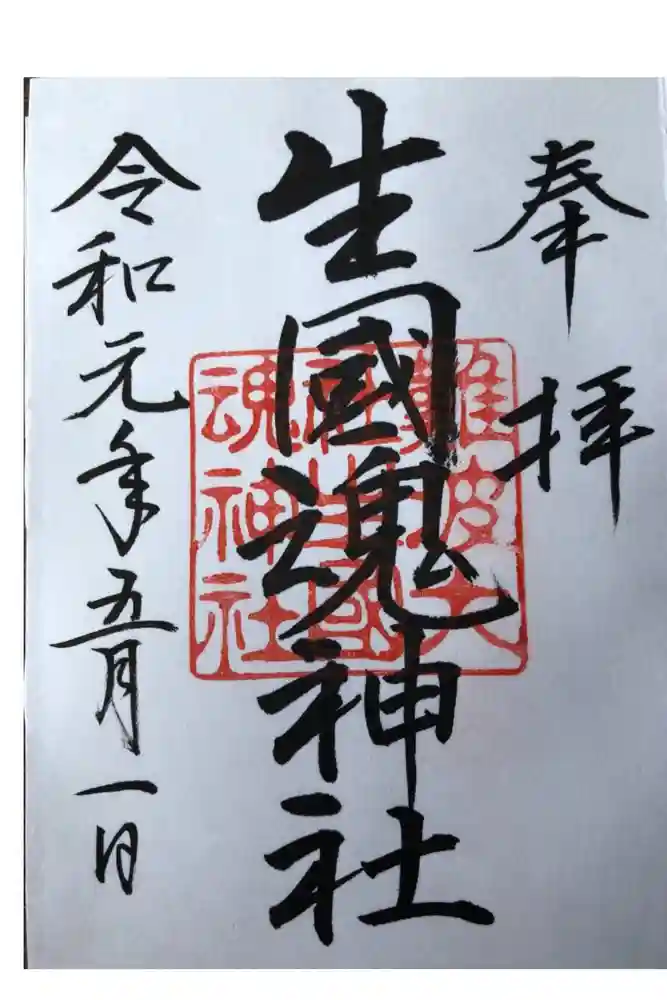 奉拝
生國魂神社
難波大
社生國
魂神社
令和元年五月一日